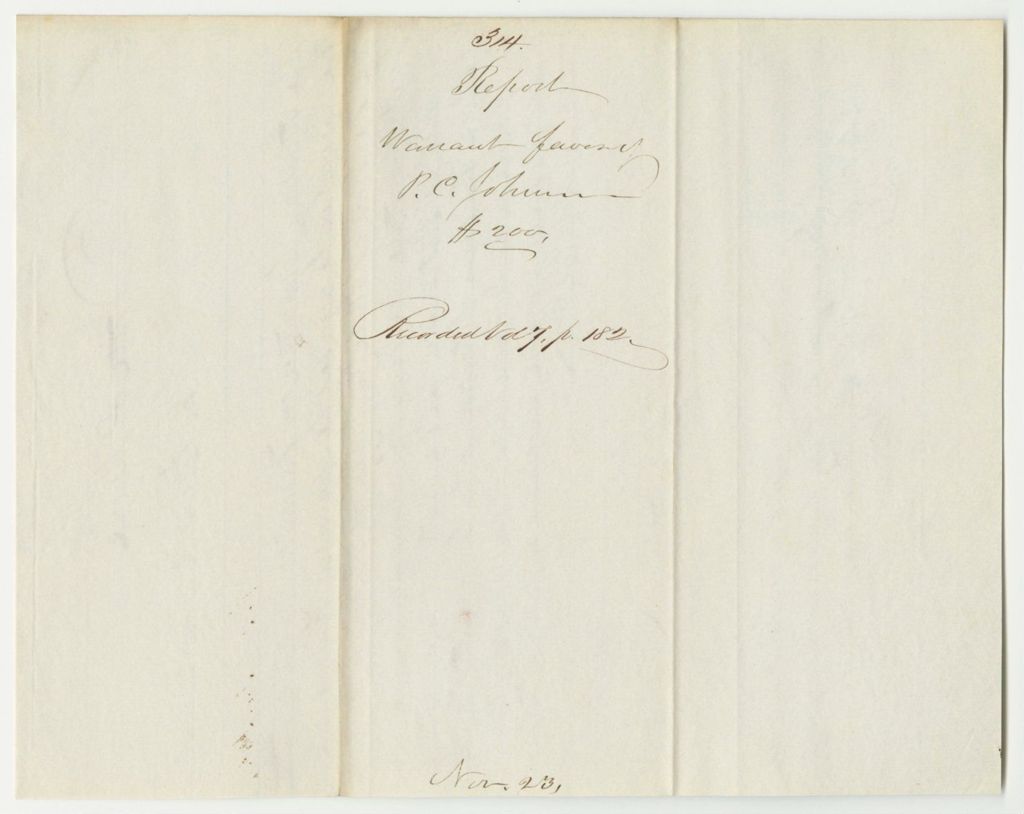 314.
Report
Warrant favor of
P. C. Johnson
$200,
Recorded Vol 7, p. 182
Nov. 23,